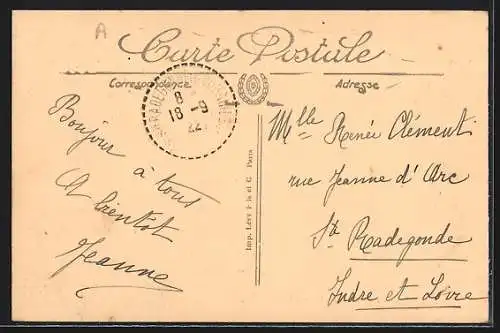 A
Carte Postale
Correspondance
Adresse
8
18 -9
22
Bonjour
à tous
A bientôt
Jeanne
Imp. Lévy Fils et C Paris
Mlle Renée Clément
rue Jeanne d'Arc
Ste Radegonde
Indre et Loire